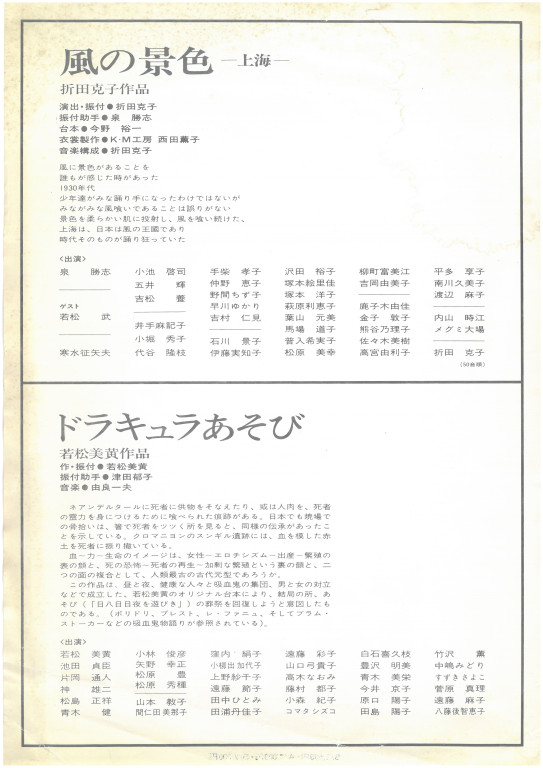 風の景色 ―上海―
折田克子作品
演出・振付●折田克子
振付助手●泉　勝志
台本●今野　裕一
衣裳製作●K・M工房 西田薫子
音楽構成●折田克子
風に景色があることを
誰もが感じた時があった
1930年代
少年達がみな踊り手になったわけではないが
みながみな風喰いであることは誤りがない
景色を柔らかい肌に投射し、風を喰い続けた、
上海は、日本は風の王國であり
時代そのものが踊り狂っていた
〈出演〉
泉　勝志　小池 啓司　手柴 孝子　沢田 裕子　柳町富美江　平多 享子
五井　輝　仲野 恵子　塚本絵里佳　吉岡由美子　南川久美子
吉松　蕾　野間ちず子　塚本 洋子　渡辺 麻子
ゲスト　早川ゆかり　萩原利恵子　鹿子木由佳
若松　武　井手麻記子　吉村 仁見　葉山 元美　金子 敦子　内山 時江
小堀 秀子　馬場 道子　熊谷乃理子　メグミ大場
石川 景子　普入希実子　佐々木美樹
寒水征矢夫　代谷 隆枝　伊藤実知子　松原 美幸　高宮由利子　折田 克子
(50音順)
ドラキュラあそび
若松美黄作品
作・振付●若松美黄
振付助手●津田郁子
音楽●由良一夫
ネアンデルタールに死者に供物をそなえたり、或は人肉を、死者
の霊力を身につけるために喰べられた痕跡がある。日本でも焼場で
の骨拾いは、箸で死者をツツく所を見ると、同様の伝承があったこ
とを示している。クロマニヨンのスンギル遺跡には、血を模した赤
土を死者に振り撒いている。
血―力―生命のイメージは、女性―エロチシズム―出産―繁殖の
表の顔と、死の恐怖―死者の再生―加割な繁殖という裏の顔と、二
つの面の複合として、人類最古の古代元型であろうか。
この作品は、昼と夜、健康な人々と吸血鬼の集団、男と女の対立
などで成立した、若松美黄のオリジナル台本により、結局の所、あ
そび（「日八日日夜を遊びき」）の葬祭を回復しようと意図したも
のである。（ポリドリ、プレスト、レ・ファニュ、そしてブラム・
ストーカーなどの吸血鬼物語りが参照されている）。
〈出演〉
若松 美黄　小林 俊彦　窪内 絹子　遠藤 彩子　白石喜久枝　竹沢　薫
池田 貞臣　矢野 幸正　小柳出加代子　山口弓貴子　豊沢 明美　中嶋みどり
片岡 通人　松原　豊　上野紗千子　高木なおみ　青木 美栄　すずきさよこ
神　雄二　松原 秀種　遠藤 節子　藤村 都子　今井 京子　菅原 真理
松島 正祥　山本 教子　田中ひとみ　小森 紀子　原口 陽子　遠藤 麻子
青木　健　間仁田美那子　田浦丹佳子　コマタシズコ　田島 陽子　八藤後智恵子